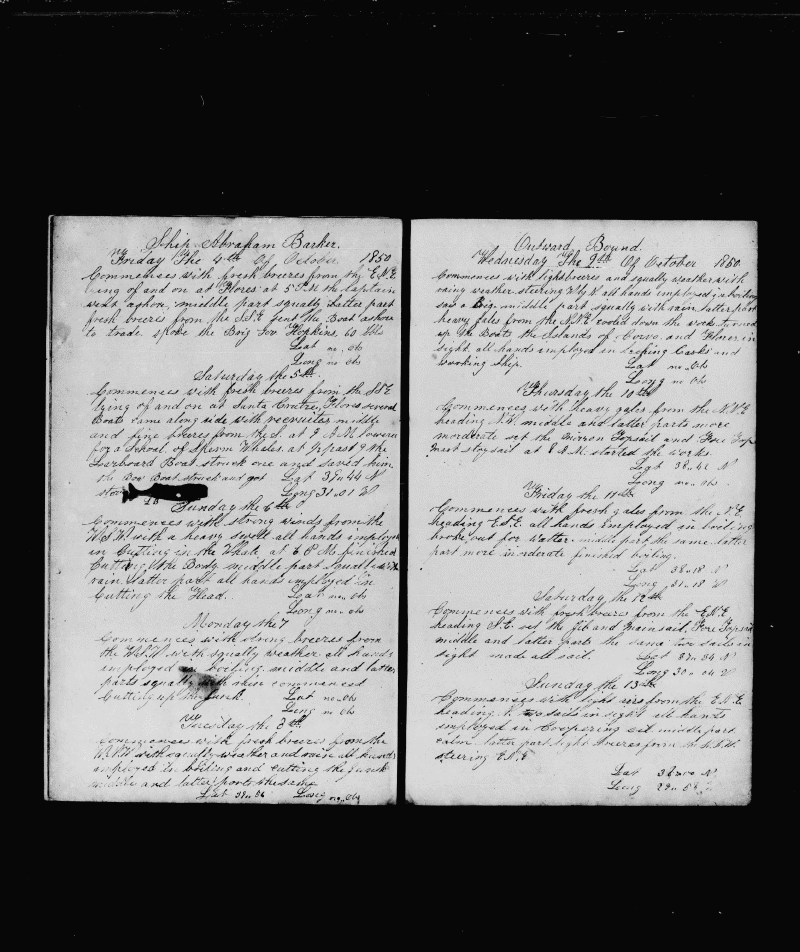 Ship Abraham Barker.
Friday The 4th Of October 1850
Commences with fresh breezes from the E.N.E
lying of and on at Flores at 5 P.M the Captain
went ashore middle part squally latter part
fresh breezes from the S.E sent the Boat ashore
to trade spoke the Brig Gov Hopkins 60 bbls
Lat no Obs
Long no Obs
Saturday the 5th
Commences with fresh breezes from the
lying of and on at Santa Crutzes, Flores several
Boats came along side with recruites middle
and fine breezes from the S. at A.M lowered
for a School of Sperm Whales at past 9 the
Larboard Boat struck one and saved him
the Bow Boat struck and got Lat 39 " 44 N
stove Long 31 " 01 W
L B
Sunday the 6th
Commences with strong winds from the
W.S.W with a heavy swell all hands employed
in Cutting in the Whale at 6 P.M. finished
Cutting the Body middle part squally with
rain latter part all hands employed in
Cutting the Head. Lat no Obs
Long no Obs
Monday the 7
Commences with strong breezes from
the W.S.W with squally weather all hands
employed in boiling middle and latter
parts squally with rain commenced
Cutting up the Junk. Lat no Obs
Long no Obs
Tuesday the 8th
Commences with fresh breezes from the
with squally weather and rain all hands
employed in boiling and cutting the Junk
middle and latter parts the same
Lat 39 " Long no Obs
Outward Bound.
Wednesday The 9th Of October 1850
Commences with light breezes and squally weather with
rainy weather steering all hands employed in boiling
saw a Brig. middle part squally with rain latter part
heavy gales from the cooled down the works turned
up the Boats the Islands of Corvo and Flores in
sight all hands employed in Casks and
working ship. Lat no Obs
Long no Obs
Thursday the 10th
Commences with heavy gales from the N.N.E
heading middle and latter parts more
morderate set the Mizzen Topsail and Fore Top
Mast staysail at 8 A.M. started the works.
Lat 38 " 42 N
Long no Obs
Friday the 11th
Commences with fresh gales from the N.E
heading E.S.E. all hands employed in boiling
broke out for watter. middle part the same latter
part more morderate finished boiling.
Lat 38 " 18 N
Long 31 " 18 W
Saturday the 12th
Commences with fresh breezes from the E.N.E
heading S.E. set the Jib and Mainsail, Fore Topsail
middle and latter parts the same two sails in
sight made all sail. Lat 37 " 34 N
Long 30 " 04 W
Sunday the 13th
Commences with light airs from the E.N.E
heading two sails in sight all hands
employed in Coopering oil middle part
calm. latter part light breezes from the
steering E.N.E
Lat 38 " 00 N
Long 29 " 58 W